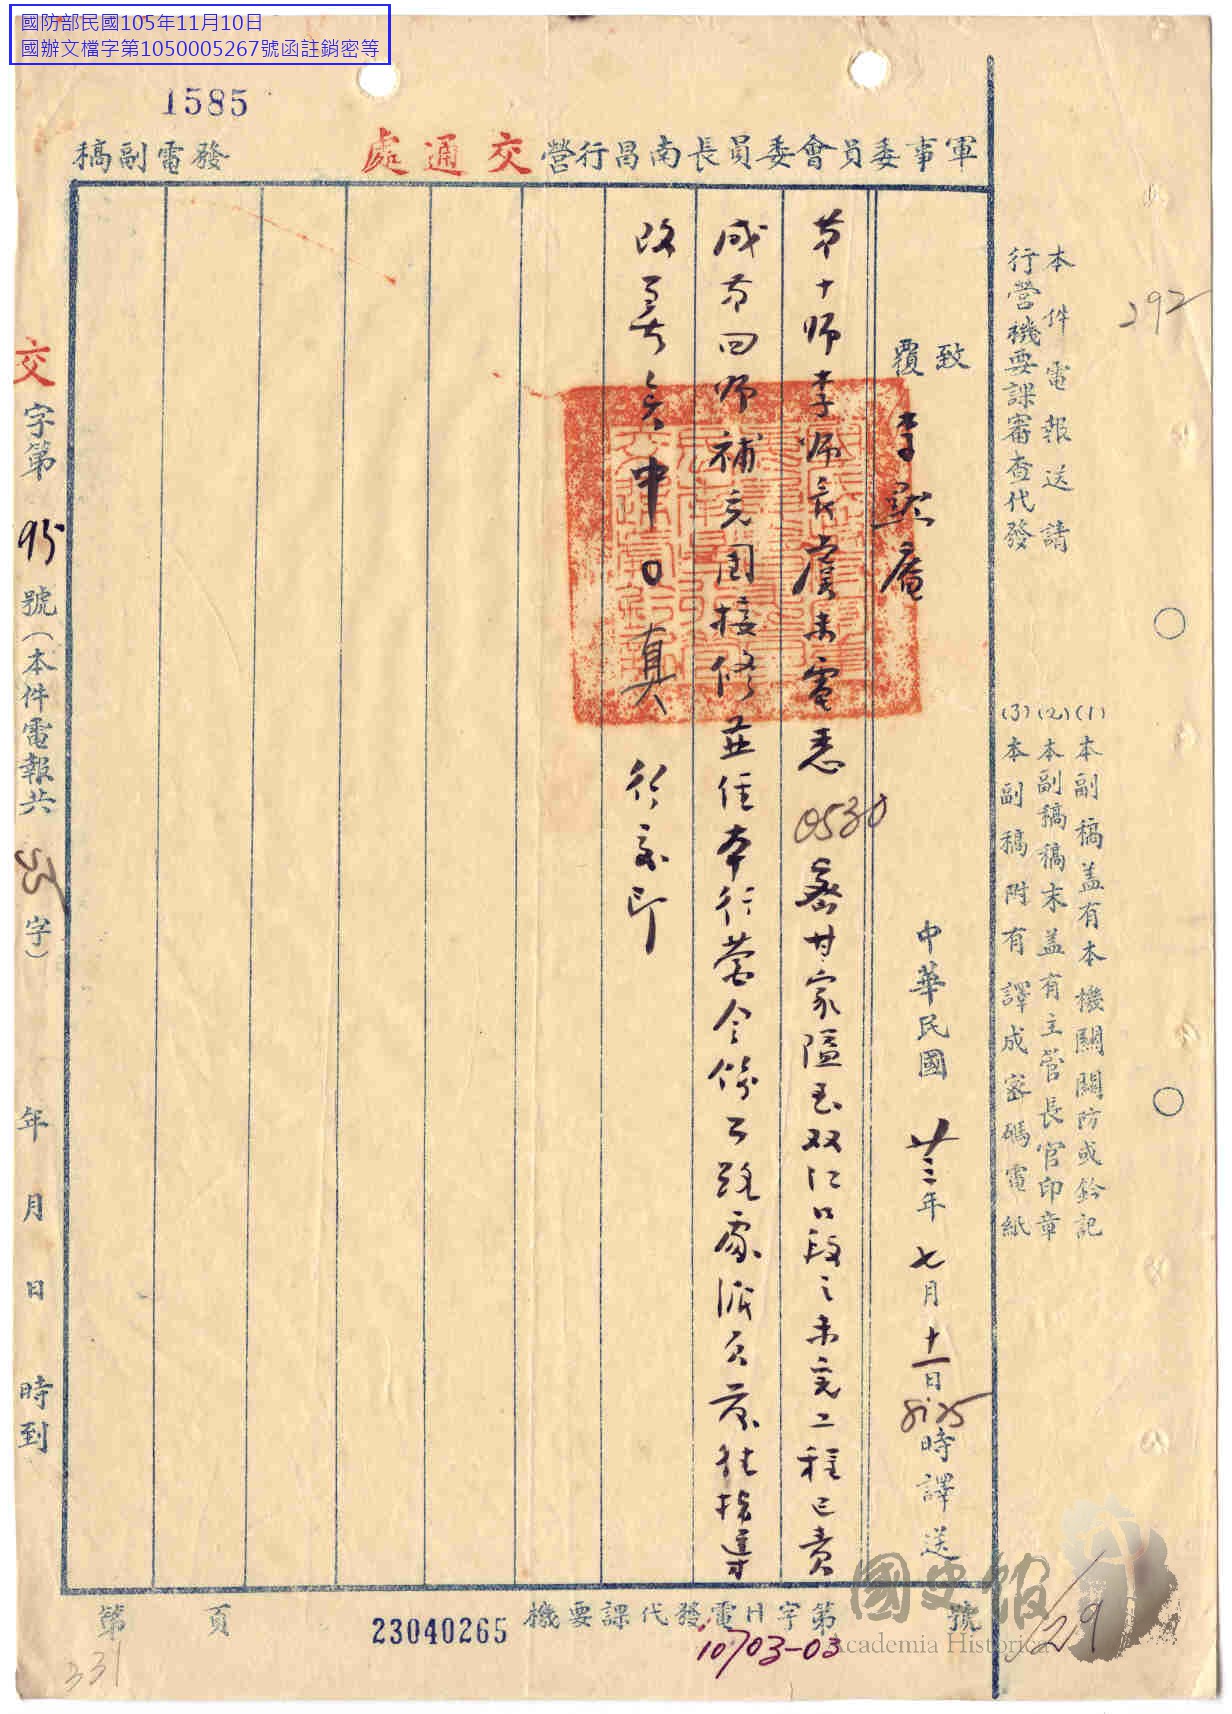 國防部民國105年11月10日
國辦文檔字第1050005267號函註銷密等
1585
軍事委員會委員長南昌行營交通處
發電副稿
292
本件電報送請
行營機要課審查代發
(1)本副稿蓋有本機關關防或鈐記
(2)本副稿稿末蓋有主管長官印章
(3)本副稿附有譯成密碼電紙
致
覆
李默庵
中華民國廿三年七月十一日
8:25
時譯送
第十師李師長虞未電悉0530密甘家隘至双江口段之未完工程已責
成第四師補充團接修並經本行營令飭公路處派員前往指導
改善矣中〇真
行交印
交字第95號(本件電報共
55
字)
年月日時到
第 頁
331
23040265
機要課代發電日字第 號
10703-03
129
國史館
Academia Historica